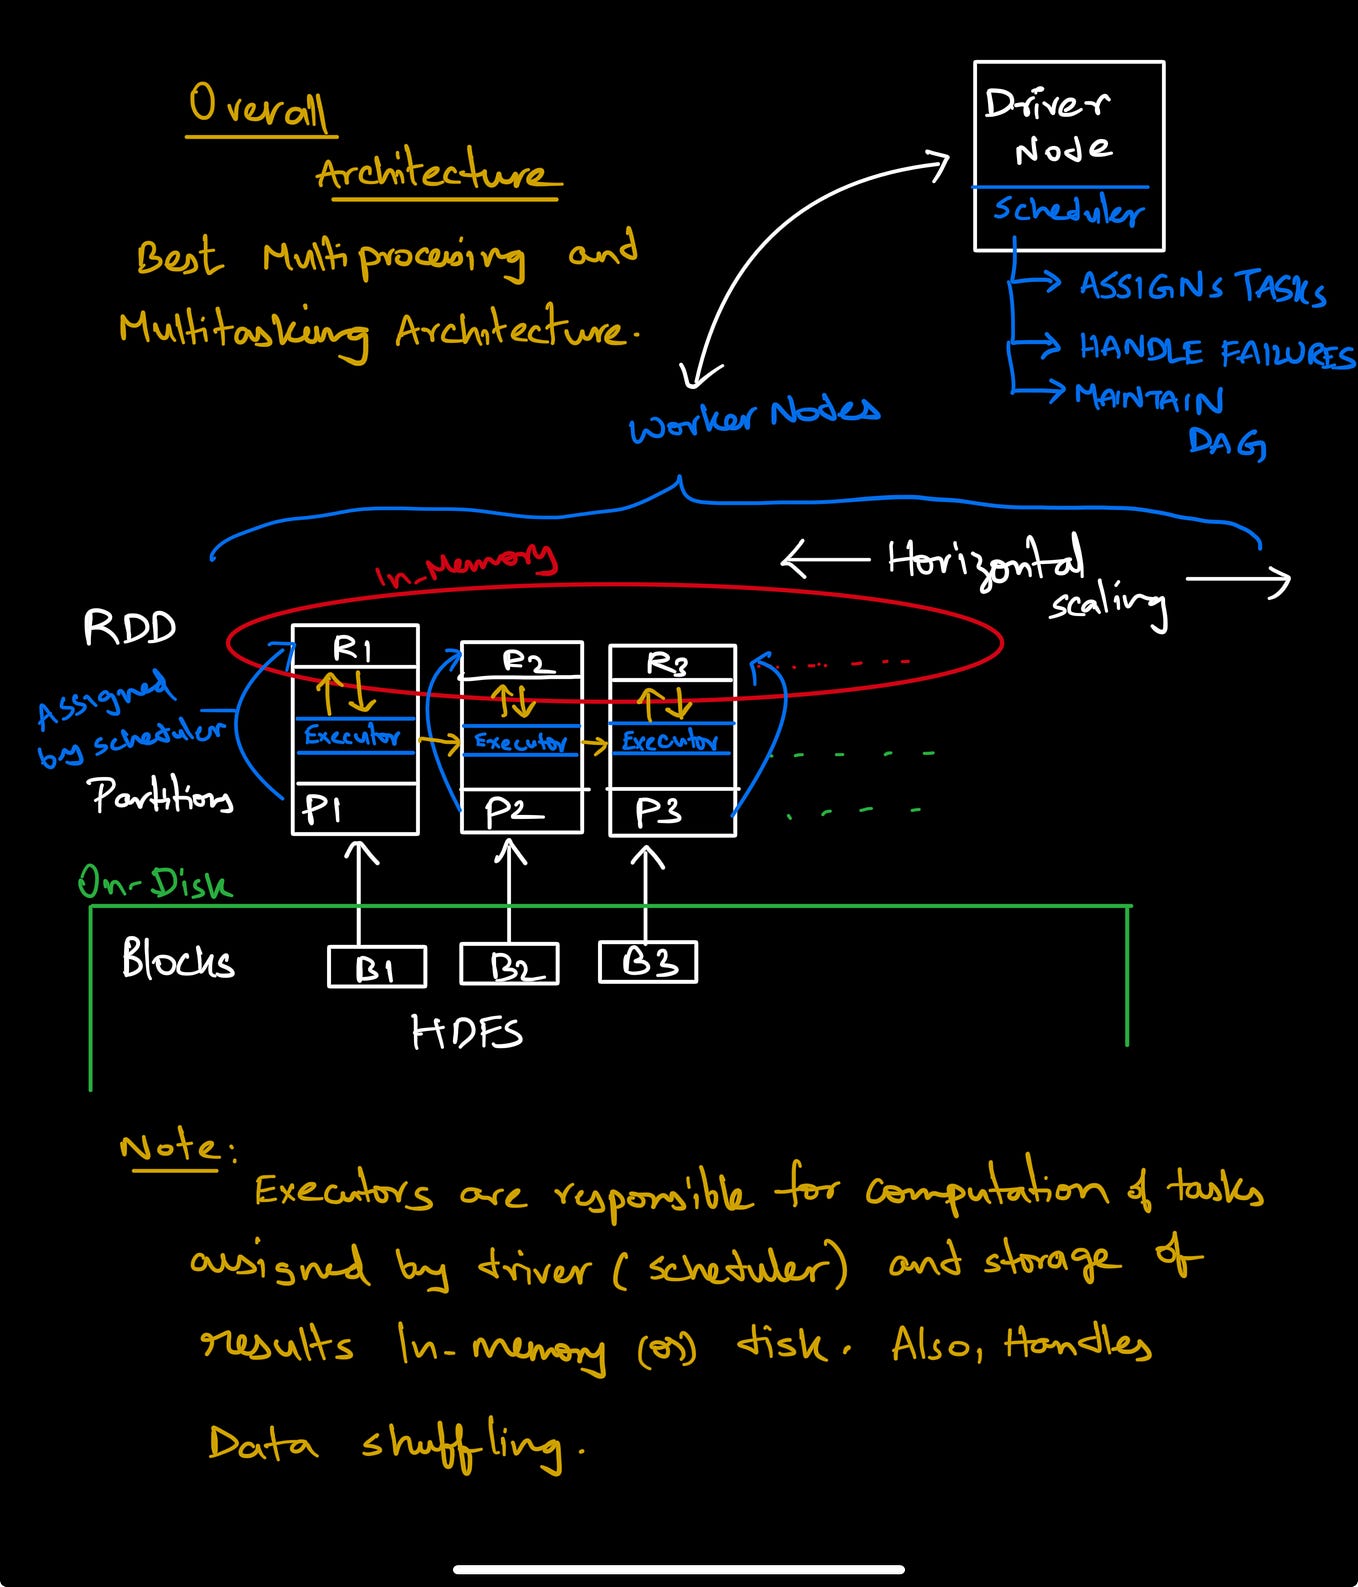 Overall
Architecture
Best Multiprocessing and
Multitasking Architecture.
Driver
Node
Scheduler
ASSIGNS TASKS
HANDLE FAILURES
MAINTAIN
DAG
Worker Nodes
In-Memory
Horizontal
scaling
RDD
R1
R2
R3
Assigned
by scheduler
Executor
Executor
Executor
Partitions
P1
P2
P3
On-Disk
Blocks
B1
B2
B3
HDFS
Note:
Executors are responsible for computation of tasks
assigned by driver (scheduler) and storage of
results In-memory (or) disk. Also, Handles
Data shuffling.